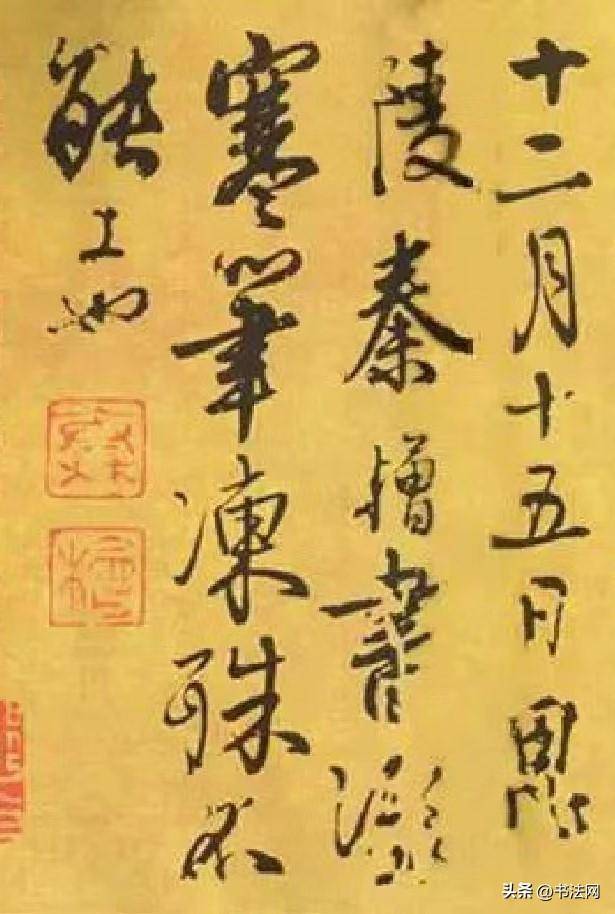 十二月十五日
陵秦書
寒筆凍殊不
能工也
头条 @书法网